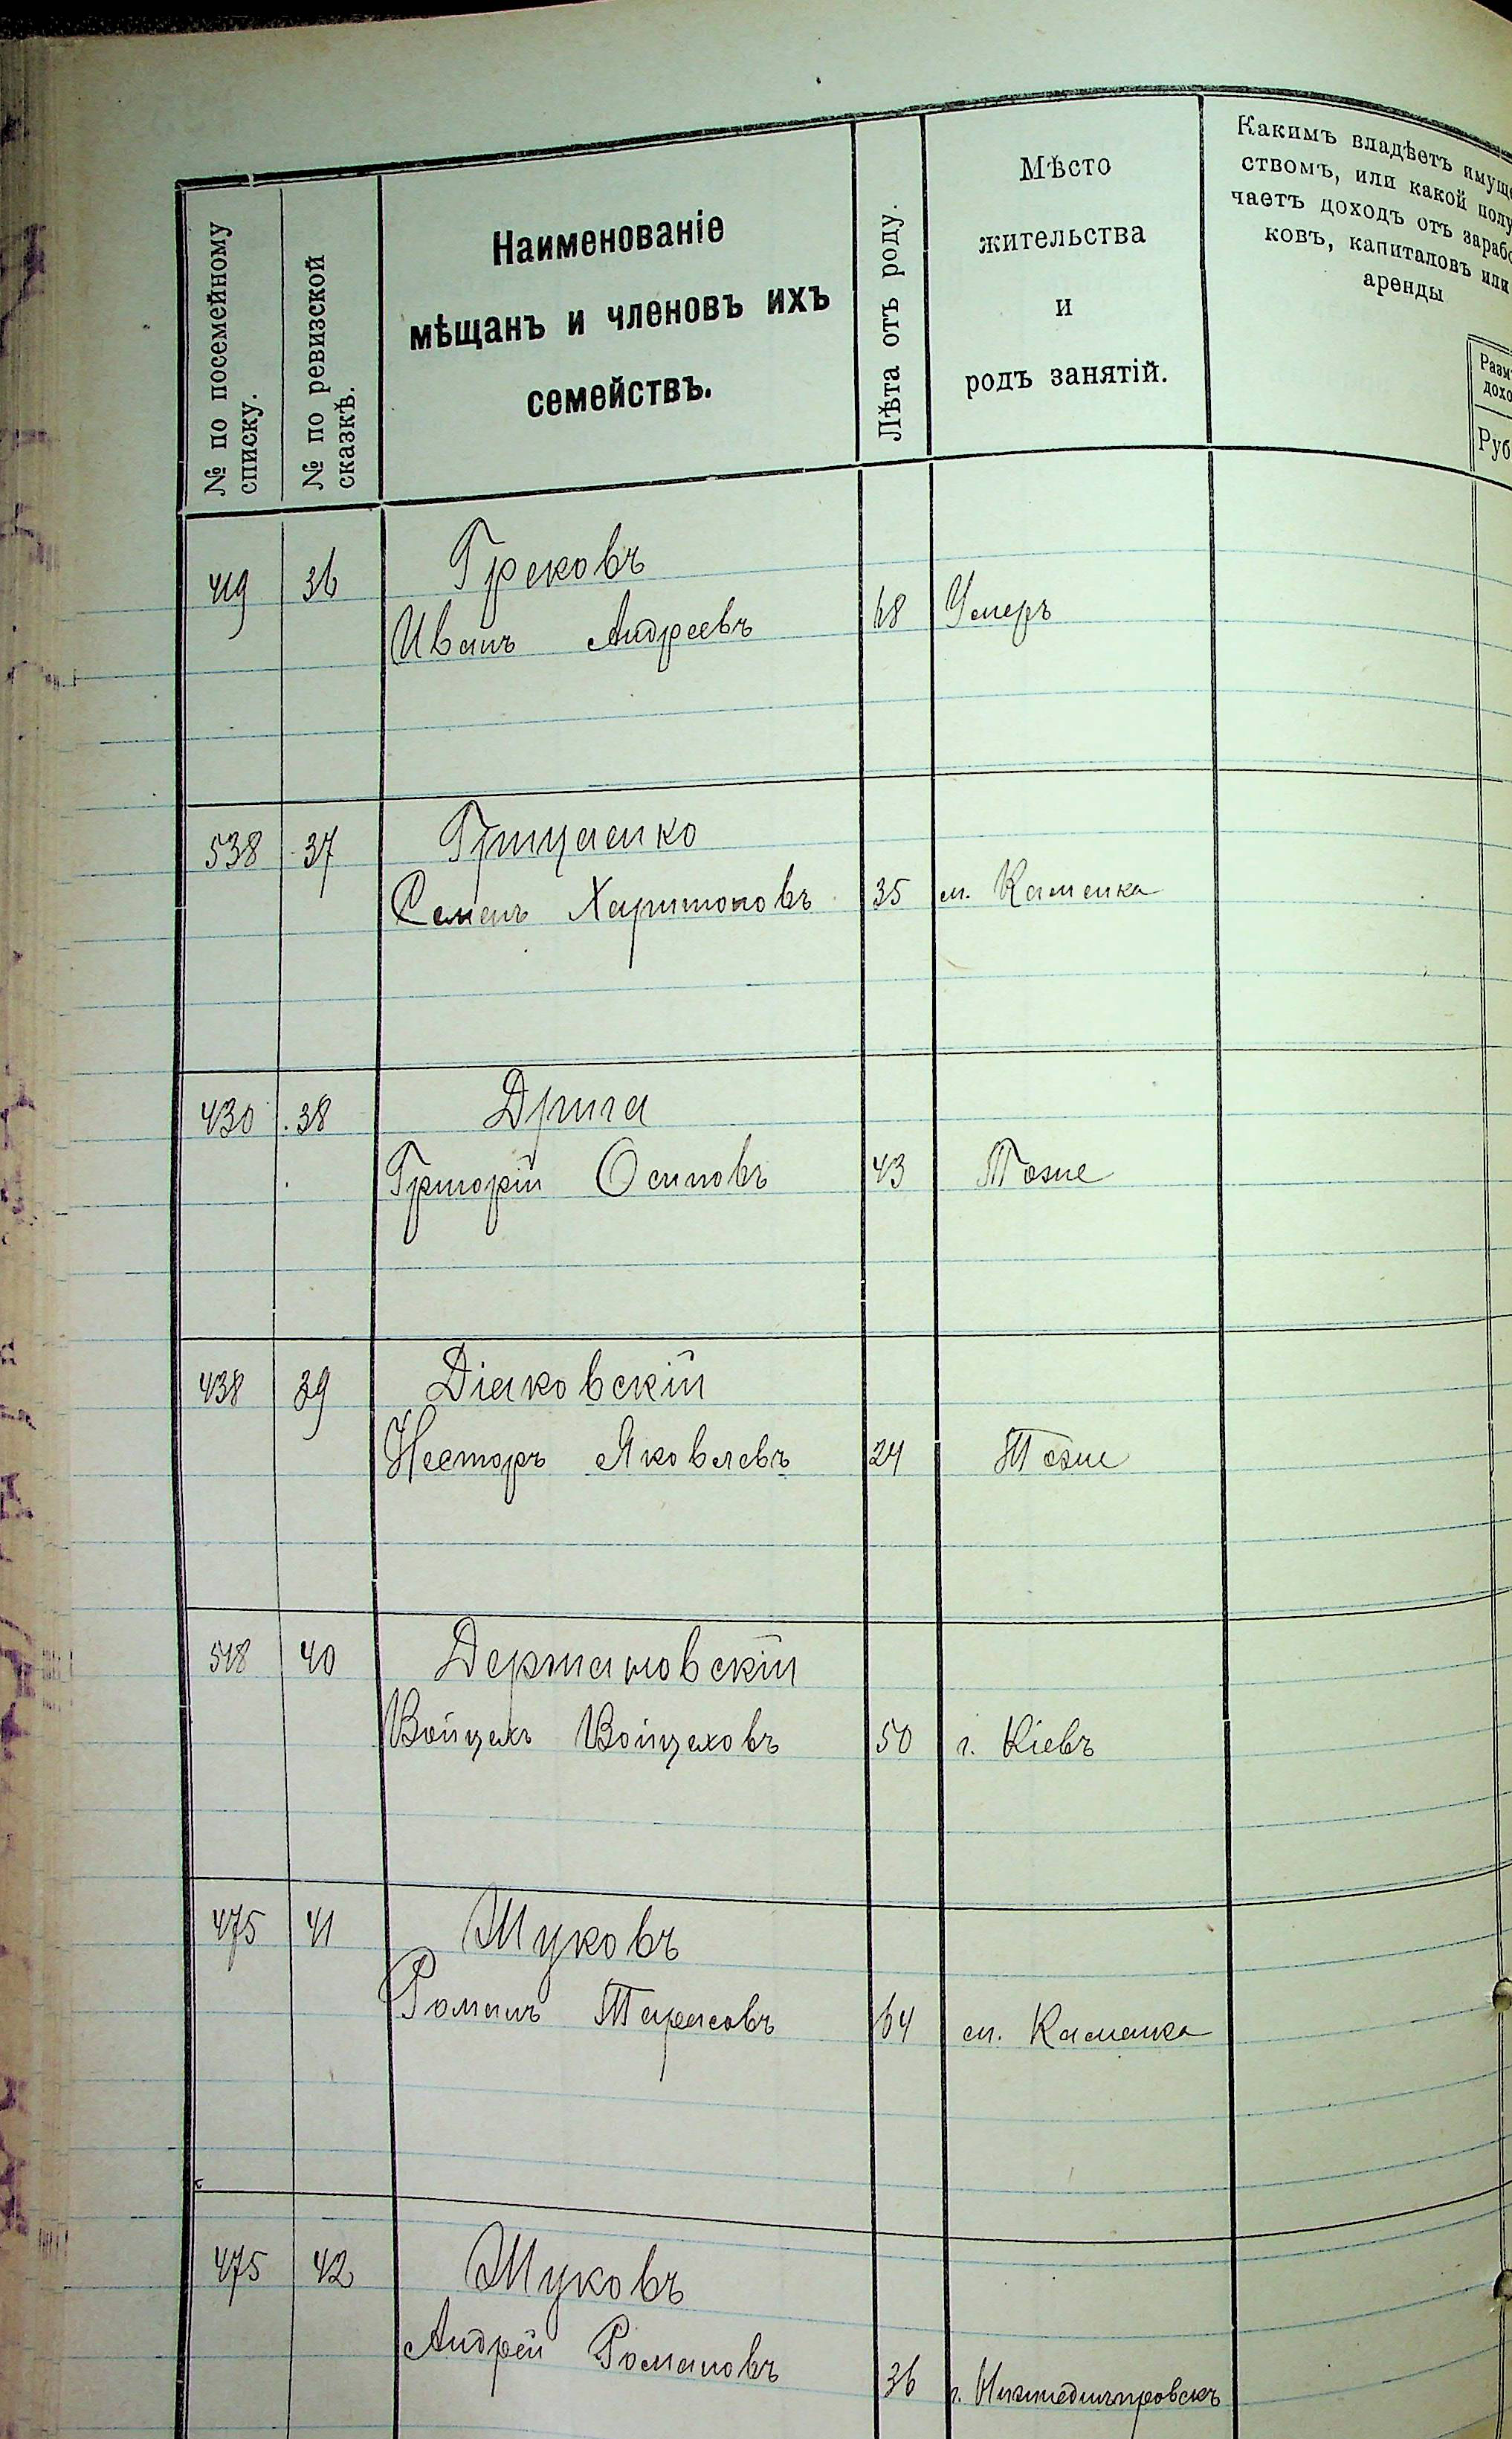 № по посемейному
списку.
№ по ревизской
сказкѣ.
Наименованіе
мѣщанъ и членовъ ихъ
семействъ.
Лѣта отъ роду.
Мѣсто
жительства
и
родъ занятій.
Какимъ владѣетъ имуще
ствомъ, или какой полу
чаетъ доходъ отъ зарабо
ковъ, капиталовъ или
аренды
Разм
дохо
Руб
419 36 Грековъ
Иванъ Андреевъ 68 Умеръ
538 37 Гриценко
Семенъ Харитоновъ 35 м. Каменка
430 38 Дрига
Григорій Осиповъ 43 Тоже
438 39 Діаковскій
Несторъ Яковлевъ 24 Тоже
518 40 Держановскій
Войцехъ Войцеховъ 50 г. Кіевъ
475 41 Жуковъ
Романъ Тарасовъ 64 м. Каменка
475 42 Жуковъ
Андрей Романовъ 36 г. Нижнеднѣпровскъ